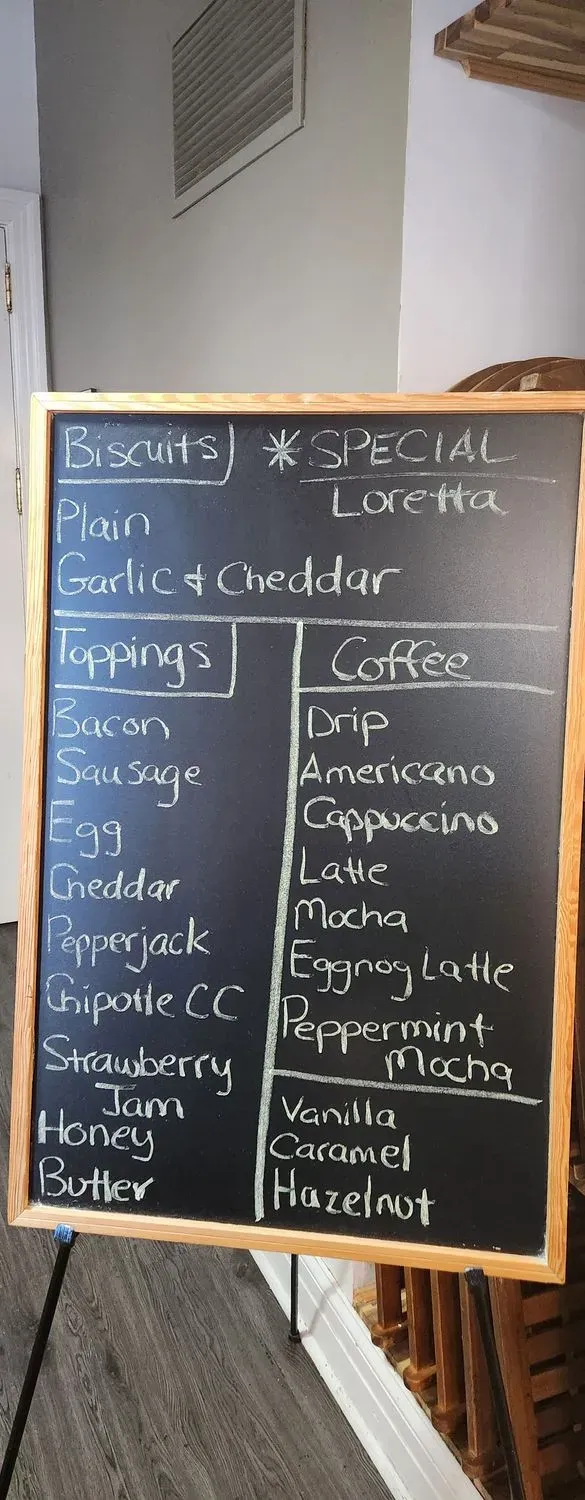 Biscuits
* SPECIAL
Loretta
Plain
Garlic & Cheddar
Toppings
Bacon
Sausage
Egg
Cheddar
Pepperjack
Chipotle CC
Strawberry
Jam
Honey
Butter
Coffee
Drip
Americano
Cappuccino
Latte
Mocha
Eggnog Latte
Peppermint
Mocha
Vanilla
Caramel
Hazelnut